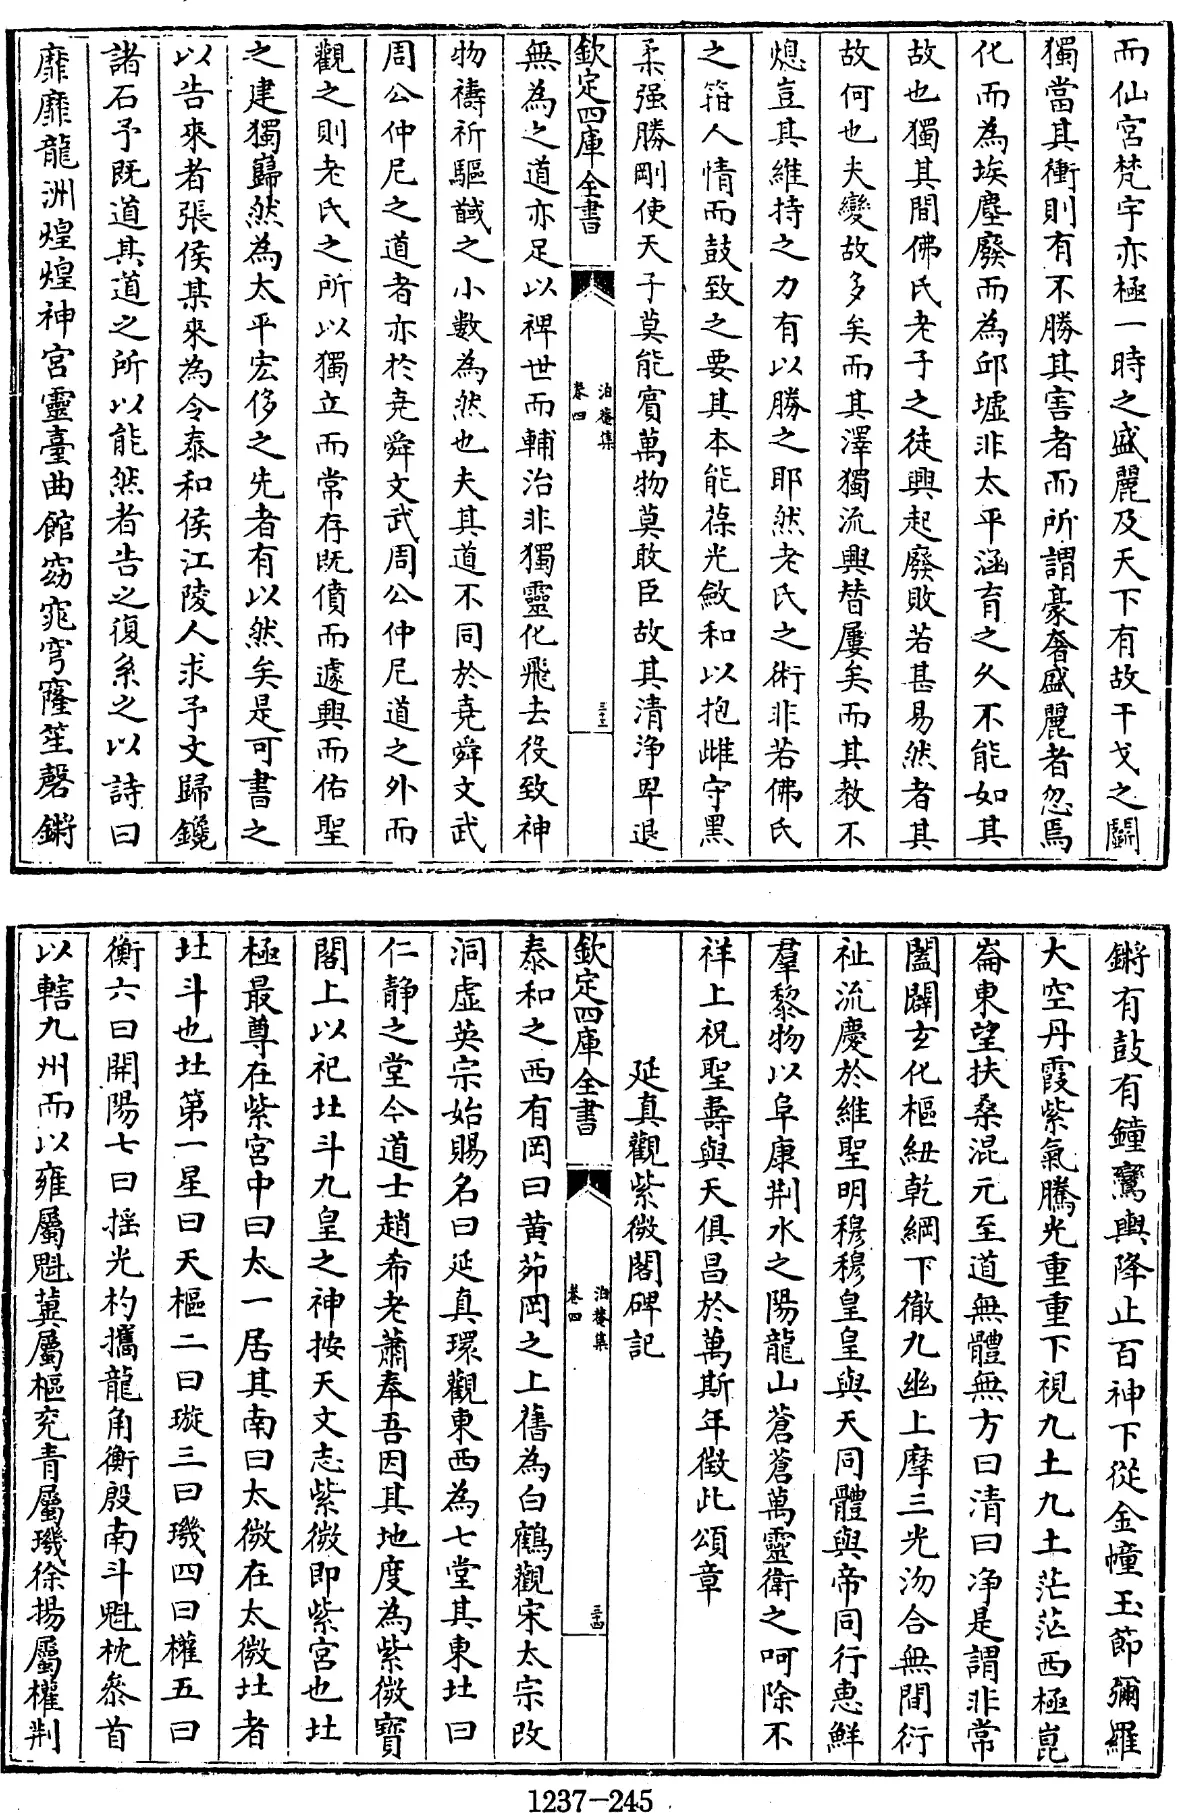 而仙宮梵宇亦極一時之盛麗及天下有故干戈之鬭
獨當其衝則有不勝其害者而所謂豪奢盛麗者忽焉
化而為埃塵廢而為邱墟非太平涵育之久不能如其
故也獨其間佛氏老子之徒興起廢敗若甚易然者其
故何也夫變故多矣而其澤獨流興替屢矣而其教不
熄豈其維持之力有以勝之耶然老氏之術非若佛氏
之箝人情而鼓致之要其本能葆光斂和以抱雌守黑
柔强勝剛使天子莫能賓萬物莫敢臣故其清淨卑退
欽定四庫全書
泊菴集
卷四
三十三
無為之道亦足以裨世而輔治非獨靈化飛去役致神
物禱祈驅馘之小數為然也夫其道不同於堯舜文武
周公仲尼之道者亦於堯舜文武周公仲尼道之外而
觀之則老氏之所以獨立而常存既僨而遽興而佑聖
之建獨巋然為太平宏侈之先者有以然矣是可書之
以告來者張侯某來為令泰和侯江陵人求予文歸鑱
諸石予既道其道之所以能然者告之復系之以詩曰
靡靡龍洲煌煌神宮靈臺曲館窈窕穹窿笙磬鏘
鏘有鼓有鐘鸞輿降止百神下從金幢玉節彌羅
大空丹霞紫氣騰光重重下視九土九土茫茫西極崑
崙東望扶桑混元至道無體無方曰清曰净是謂非常
闔闢玄化樞紐乾綱下徹九幽上摩三光沕合無間衍
祉流慶於維聖明穆穆皇皇與天同體與帝同行惠鮮
羣黎物以阜康荆水之陽龍山蒼蒼萬靈衛之呵除不
祥上祝聖壽與天俱昌於萬斯年徵此頌章
延真觀紫微閣碑記
欽定四庫全書
泊菴集
卷四
三十四
泰和之西有岡曰黄茆岡之上舊為白鶴觀宋太宗改
洞虛英宗始賜名曰延真環觀東西為七堂其東北曰
仁静之堂今道士趙希老蕭奉吾因其地度為紫微寳
閣上以祀北斗九皇之神按天文志紫微即紫宮也北
極最尊在紫宮中曰太一居其南曰太微在太微北者
北斗也北第一星曰天樞二曰璇三曰璣四曰權五曰
衡六曰開陽七曰揺光杓攜龍角衡殷南斗魁枕參首
以轄九州而以雍屬魁冀屬樞兖青屬璣徐揚屬權荆
1237-245